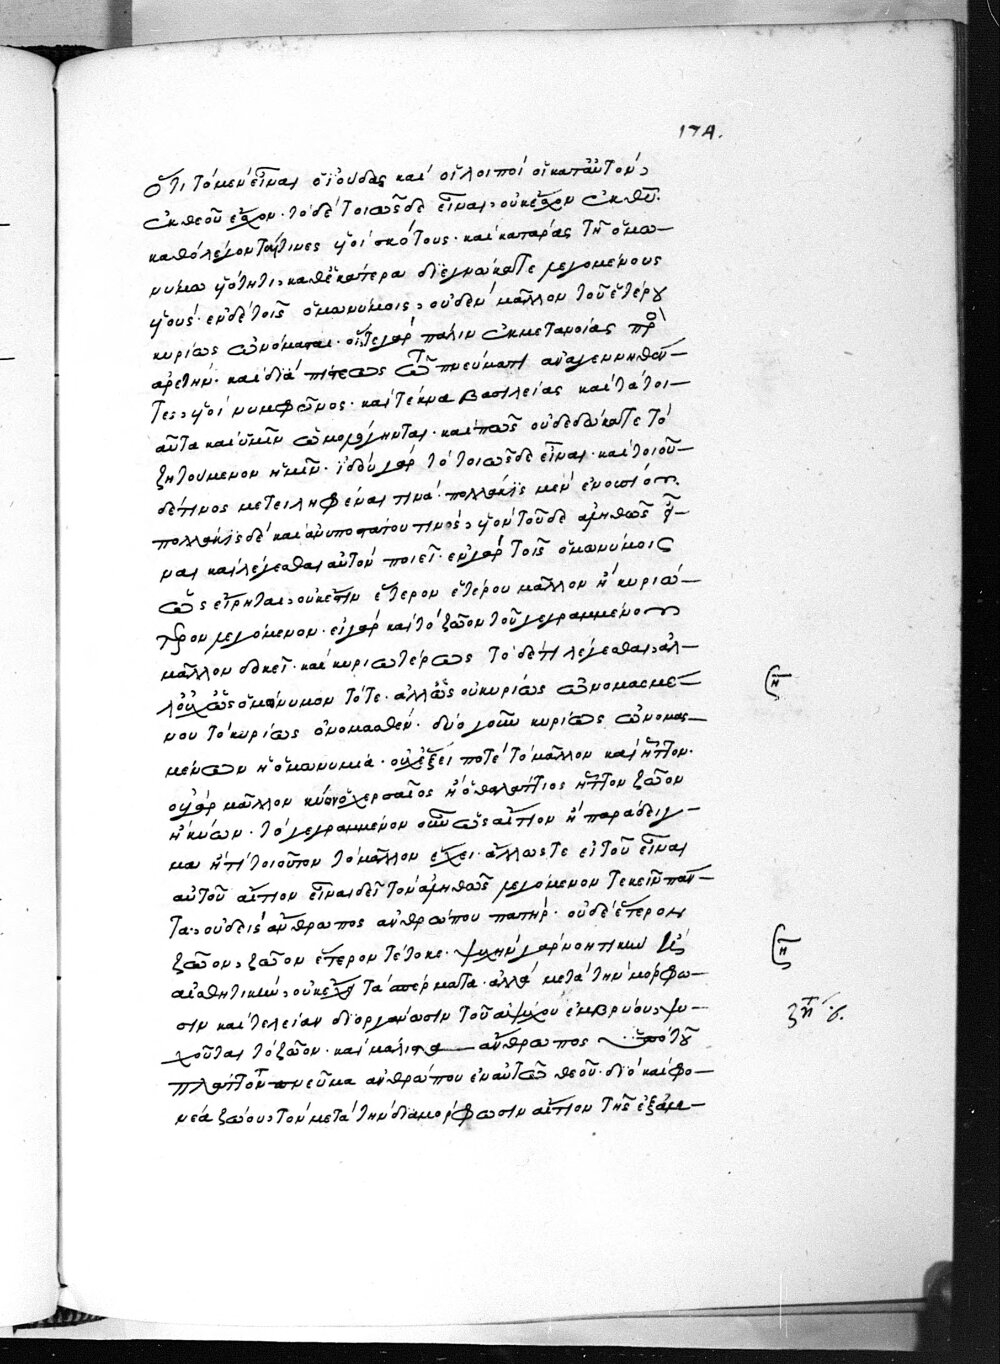 174.
ὅτι τὸ μὲν εἶναι ὁ ἰούδας καὶ οἱ λοιποὶ οἱ κατ' αὐτὸν,
ἐκ θεοῦ εἶχον· τὸ δὲ τοιῶσδε εἶναι, οὐκ εἶχον ἐκ θεοῦ.
καθὸ λέγονταί τινες υἱοὶ σκότους· καὶ κατάρας τῇ ὁμω–
νύμῳ υἱότητι, καθ' ἑκάτερα διέγνωκάς τε λεγομένους
υἱούς· ἐν δὲ τοῖς ὁμωνύμοις, οὐδὲν μᾶλλον τοῦ ἑτέρου
κυρίως ὠνόμασται· οἵ τε γὰρ πάλιν ἐκ μετανοίας πρὸς
ἀρετὴν· καὶ διὰ πίστεως τῷ πνεύματι ἀναγεννηθέν–
τες, υἱοὶ νυμφῶνος· καὶ τέκνα βασιλείας καὶ τὰ τοι–
αῦτα καὶ ὑμῖν ὡμολόγηνται· καὶ πῶς οὐ δεδώκατε τὸ
ζητούμενον ἡμῖν· ἰδοὺ γὰρ τὸ τοιῶσδε εἶναι· καὶ τοιοῦ–
δέ τινος μετειληφέναι τινά· πολλάκις μὲν
πολλάκις δὲ καὶ ἀνυποστάτου τινός, υἱὸν τοῦδε ἀληθῶς εἶ–
ναι καὶ λέγεσθαι αὐτὸν ποιεῖ· ἐν γὰρ τοῖς ὁμωνύμοις
ὡς εἴρηται, οὐκ ἔστιν ἕτερον ἑτέρου μᾶλλον ἢ κυριώ–
τερον λεγόμενον· εἰ γὰρ καὶ τὸ ζῶον τοῦ γεγραμμένου
μᾶλλον δοκεῖ· καὶ κυριωτέρως τόδε τι λέγεσθαι, ἀλ–
λ' οὐχ ὡς ὁμώνυμον τότε· ἀλλ' ὡς οὐ κυρίως ὠνομασμέ–
νου τὸ κυρίως ὀνομασθέν· δύο γοῦν κυρίως ὠνομασ–
μένων ἡ ὁμωνυμία· οὐχ ἕξει ποτὲ τὸ μᾶλλον καὶ ἧττον·
οὐ γὰρ μᾶλλον κύων ὁ χερσαῖος ἢ ὁ θαλάττιος ἧττον ζῶον
ἢ κύων· τὸ γεγραμμένον οὖν ὡς αἴτιον ἢ παράδειγ–
μα ἤ τι τοιοῦτον τὸ μᾶλλον ἔχει· ἄλλως τε εἰ τοῦ εἶναι
αὐτοῦ αἴτιον εἶναι δεῖ τὸν ἀληθῶς λεγόμενον τεκεῖν παν–
τα, οὐδεὶς ἄνθρωπος ἀνθρώπου πατήρ· οὐδὲ ἕτερον
ζῶον, ζῶον ἕτερον τέτοκε· ψυχὴν γὰρ νοητικὴν ἢ
αἰσθητικὴν, οὐκ ἔχει τὰ σπέρματα· ἀλλὰ μετὰ τὴν μόρφω–
σιν καὶ τελείαν διοργάνωσιν τοῦ ἀψύχου ἐμβρύου, ψυ–
χοῦται τὸ ζῶον· καὶ μάλιστα ἄνθρωπος ὑπὸ τοῦ
πλάττοντος πνεῦμα ἀνθρώπου ἐν αὐτῷ θεοῦ· διὸ καὶ φο–
νέα ζώου, τὸν μετὰ τὴν διαμόρφωσιν αἴτιον τῆς ἐξαμ–